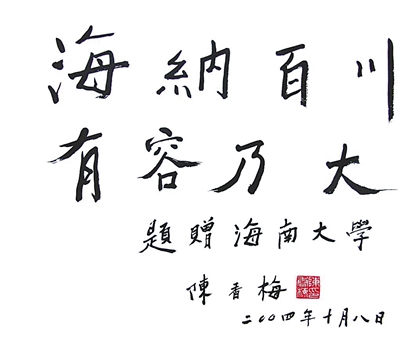 海納百川
有容乃大
題贈海南大學
陳香梅
二〇〇四年十月八日